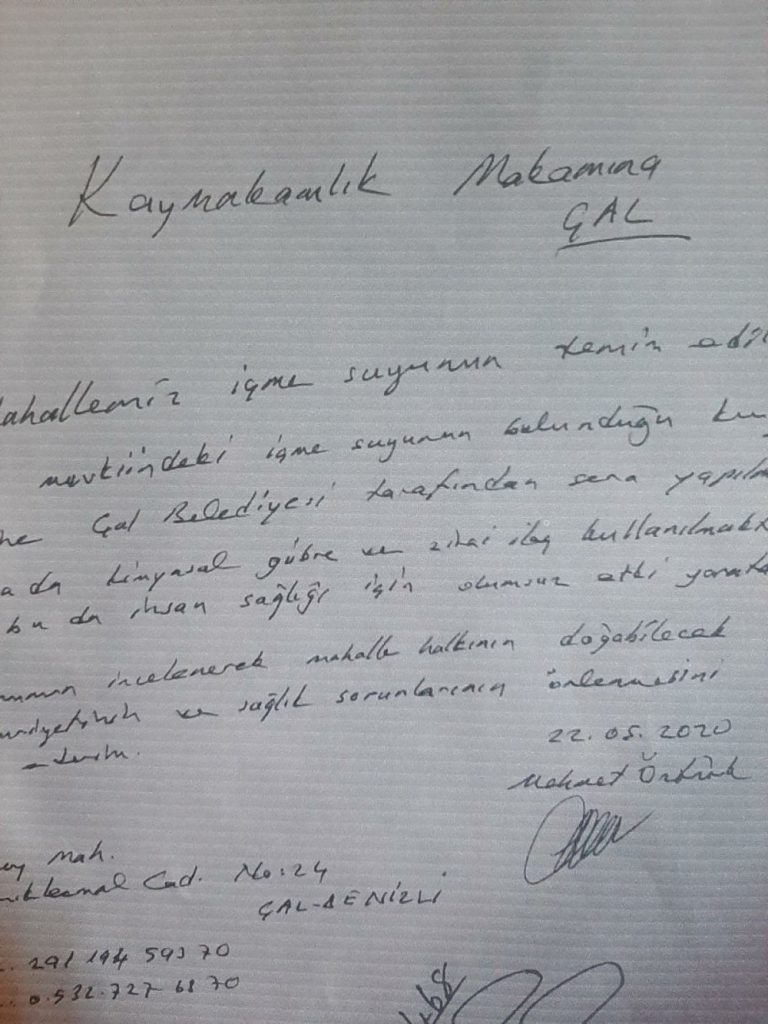 Kaymakamlık Makamına
ÇAL
ahallemiz içme suyunun temin edil
mevkiindeki içme suyunun bulunduğu ku
ne Çal Belediyesi tarafından sera yapılm
a da kimyasal gübre ve zirai ilaç kullanılmakt
bu da insan sağlığı için olumsuz etki yarat
incelenerek mahalle halkının doğabilecek
ve sağlık sorunlarının önlenmesini
22.05.2020
Mehmet Öztürk
Mah.
Cad. No:24
ÇAL-DENİZLİ
291 194 593 70
0.532.727 68 70